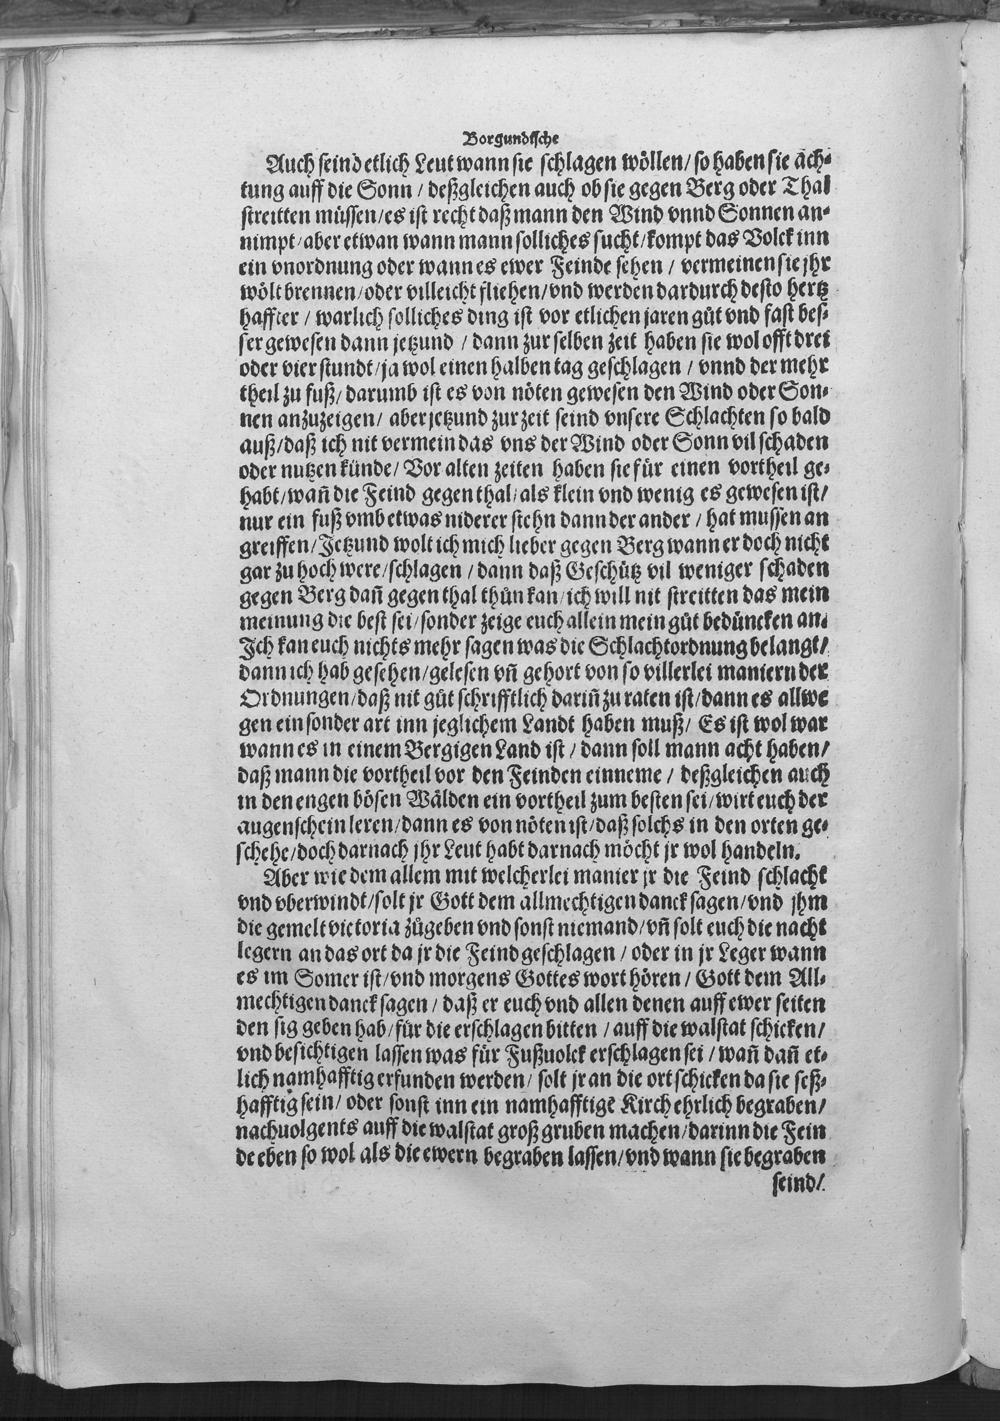 Borgundische
Auch seind etlich Leut wann sie schlagen wöllen/ so haben sie ach-
tung auff die Sonn / deßgleichen auch ob sie gegen Berg oder Thal
streitten müssen/ es ist recht daß mann den Wind vnnd Sonnen an-
nimpt/ aber etwan wann mann solliches sucht/ kompt das Volck inn
ein vnordnung oder wann es ewer Feinde sehen / vermeinen sie jhr
wölt brennen/ oder villeicht fliehen/ vnd werden dardurch desto hertz
haffter / warlich solliches ding ist vor etlichen jaren gůt vnd fast bes-
ser gewesen dann jetzund / dann zur selben zeit haben sie wol offt drei
oder vier stundt/ ja wol einen halben tag geschlagen / vnnd der mehr
theil zu fuß/ darumb ist es von nöten gewesen den Wind oder Son-
nen anzuzeigen/ aber jetzund zur zeit seind vnsere Schlachten so bald
auß/ daß ich nit vermein das vns der Wind oder Sonn vil schaden
oder nutzen künde/ Vor alten zeiten haben sie für einen vortheil ge-
habt/ wañ die Feind gegen thal/ als klein vnd wenig es gewesen ist/
nur ein fuß vmb etwas niderer stehn dann der ander / hat mussen an
greiffen/ Jetzund wolt ich mich lieber gegen Berg wann er doch nicht
gar zu hoch were/ schlagen / dann daß Geschütz vil weniger schaden
gegen Berg dañ gegen thal thůn kan/ ich will nit streitten das mein
meinung die best sei/ sonder zeige euch allein mein gůt bedüncken an.
Ich kan euch nichts mehr sagen was die Schlachtordnung belangt/
dann ich hab gesehen/ gelesen vñ gehort von so villerlei maniern der
Ordnungen/ daß nit gůt schrifftlich dariñ zu raten ist/ dann es allwe
gen ein sonder art inn jeglichem Landt haben muß/ Es ist wol war
wann es in einem Bergigen Land ist / dann soll mann acht haben/
daß mann die vortheil vor den Feinden einneme / deßgleichen auch
in den engen bösen Wälden ein vortheil zum besten sei/ wirt euch der
augenschein leren/ dann es von nöten ist/ daß solchs in den orten ge-
schehe/ doch darnach jhr Leut habt darnach möcht jr wol handeln.
Aber wie dem allem mit welcherlei manier jr die Feind schlacht
vnd vberwindt/ solt jr Gott dem allmechtigen danck sagen/ vnd jhm
die gemelt victoria zůgeben vnd sonst niemand/ vñ solt euch die nacht
legern an das ort da jr die Feind geschlagen / oder in jr Leger wann
es im Somer ist/ vnd morgens Gottes wort hören/ Gott dem All-
mechtigen danck sagen / daß er euch vnd allen denen auff ewer seiten
den sig geben hab/ für die erschlagen bitten / auff die walstat schicken/
vnd besichtigen lassen was für Fußuolck erschlagen sei / wañ dañ et-
lich namhafftig erfunden werden/ solt jr an die ort schicken da sie seß-
hafftig sein/ oder sonst inn ein namhafftigẽ Kirch ehrlich begraben/
nachuolgents auff die walstat groß gruben machen/ darinn die Fein
de eben so wol als die ewern begraben lassen/ vnd wann sie begraben
seind/